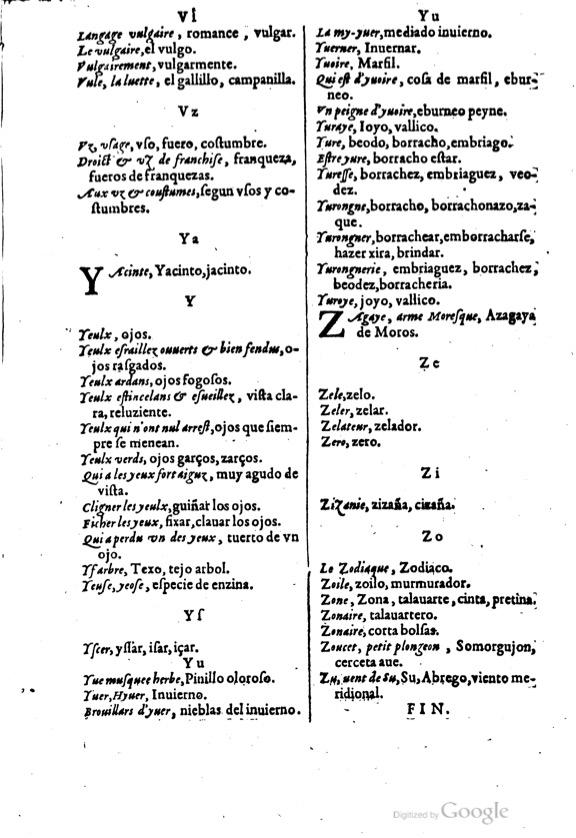 Vl
Langage vulgaire, romance, vulgar.
Le vulgaire, el vulgo.
Vulgairement, vulgarmente.
Vule, la luette, el gallillo, campanilla.
Vz
Vz, vſage, vſo, fuero, coſtumbre.
Droict & vz de franchiſe, franqueza,
fueros de franquezas.
Aux vz & couſtumes, ſegun vſos y co-
ſtumbres.
Ya
YAcinte, Yacinto, jacinto.
Y
Yeulx, ojos.
Yeulx eſraillez ouuerts & bien fendus, o-
jos raſgados.
Yeulx ardans, ojos fogoſos.
Yeulx eſtincelans & eſueillez, viſta cla-
ra, reluziente.
Yeulx qui n'ont nul arreſt, ojos que ſiem-
pre ſe menean.
Yeulx verds, ojos garços, zarços.
Qui a les yeux fort aiguz, muy agudo de
viſta.
Cligner les yeulx, guiñar los ojos.
Ficher les yeux, fixar, clauar los ojos.
Qui a perdu vn des yeux, tuerto de vn
ojo.
Yf arbre, Texo, tejo arbol.
Yeuſe, yeoſe, eſpecie de enzina.
Yſ
Yſcer, yſſar, iſar, içar.
Yu
Yue muſquee herbe, Pinillo oloroſo.
Yuer, Hyuer, Inuierno.
Brouillars d'yuer, nieblas del inuierno.
Yu
La my-yuer, mediado inuierno.
Yuerner, Inuernar.
Yuoire, Marfil.
Qui eſt d'yuoire, coſa de marfil, ebur-
neo.
Vn peigne d'yuoire, eburneo peyne.
Yuraye, Ioyo, vallico.
Yure, beodo, borracho, embriago.
Eſtre yure, borracho eſtar.
Yureſſe, borrachez, embriaguez, veo-
dez.
Yurongne, borracho, borrachonazo, za-
que.
Yurongner, borrachear, emborracharſe,
hazer xira, brindar.
Yurongnerie, embriaguez, borrachez,
beodez, borracheria.
Yuroye, joyo, vallico.
ZAgaye, arme Moreſque, Azagaya
de Moros.
Ze
Zele, zelo.
Zeler, zelar.
Zelateur, zelador.
Zero, zero.
Zi
Zizanie, zizaña, cizaña.
Zo
Le Zodiaque, Zodiaco.
Zoile, zoilo, murmurador.
Zone, Zona, talauarte, cinta, pretina.
Zonaire, talauartero.
Zonaire, corta bolſas.
Zoucet, petit plongeon, Somorgujon,
cerceta aue.
Zu, uent de Su, Su, Abrego, viento me-
ridional.
FIN.
Digitized by Google